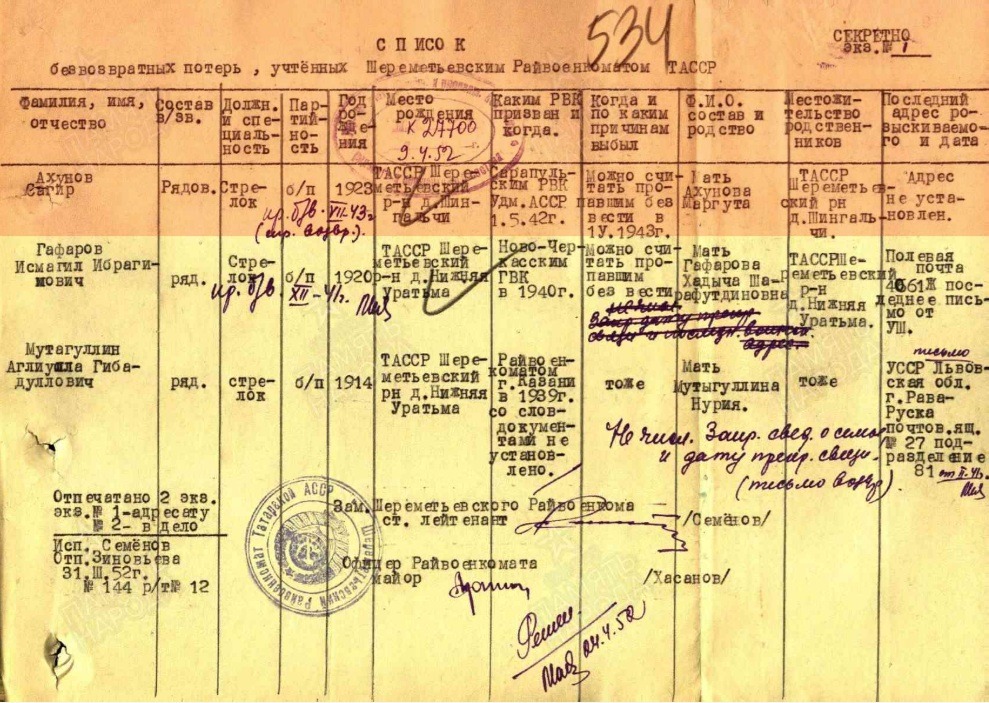 534
СЕКРЕТНО
экз.№ 1
С П И С О К
безвозвратных потерь , учтённых Шереметьевским Райвоенкоматом ТАССР
Фамилия, имя, отчество
Состав в/зв.
Должн. и спе- циаль- ность
Пар- тий- но- сть
Год ро- жде- ния
Место рождения
Каким РВК призван и когда.
Когда и по каким причинам выбыл
Ф.И.О. состав и родство
Местожи- тельство родствен- ников
Последний адрес ро- зыскиваемо- го и дата
К 27700
9.4.52
Ахунов Сагир
Рядов.
Стре- лок
б/п
1923
ТАССР Шере- метьевский р-н д.Шин- гальчи
Сарапуль- ским РВК Удм.АССР 1.5.42г.
Можно счи- тать про- павшим без вести в 1У.1943г.
Мать Ахунова Маргута
ТАССР Шереметьев- ский рн д.Шингаль- чи.
Адрес не уста- новлен.
пр. б/в. VII-43г.
Гафаров Исмагил Ибраги- мович
ряд.
Стре- лок
б/п
1920
ТАССР Шере- метьевский р-н д.Нижняя Уратьма
Ново-Чер- касским ГВК в 1940г.
Можно счи- тать про- павшим без вести
Мать Гафарова Хадыча Ша- рафутдиновна
ТАССРШе- реметьевский р-н д.Нижняя Уратьма.
Полевая почта 4061Ж пос- леднее пись- мо от УШ.
пр. б/в XII-41г.
Мутагуллин Аглиушла Гиба- дуллович
ряд.
стре- лок
б/п
1914
ТАССР Шере- метьевский рн д.Нижняя Уратьма
Райвоен- коматом г.Казани в 1939г. со слов- докумен- тами не установ- лено.
тоже
Мать Мутыгуллина Нурия.
тоже
письмо
УССР Львов- ская обл. г.Рава- Руска почтов.ящ. № 27 под- разделение 81
Не числ. Запр. свед. о семье
и дату прекр. связи.
(письмо возвр)
Отпечатано 2 экз.
экз.№ 1-адресату
№ 2- в дело
Исп. Семёнов
Отп.Зиновьева
31.Ш.52г.
№ 144 р/т№ 12
Зам. Шереметьевского Райвоенкома
ст. лейтенант /Семёнов/
Офицер Райвоенкомата
майор /Хасанов/